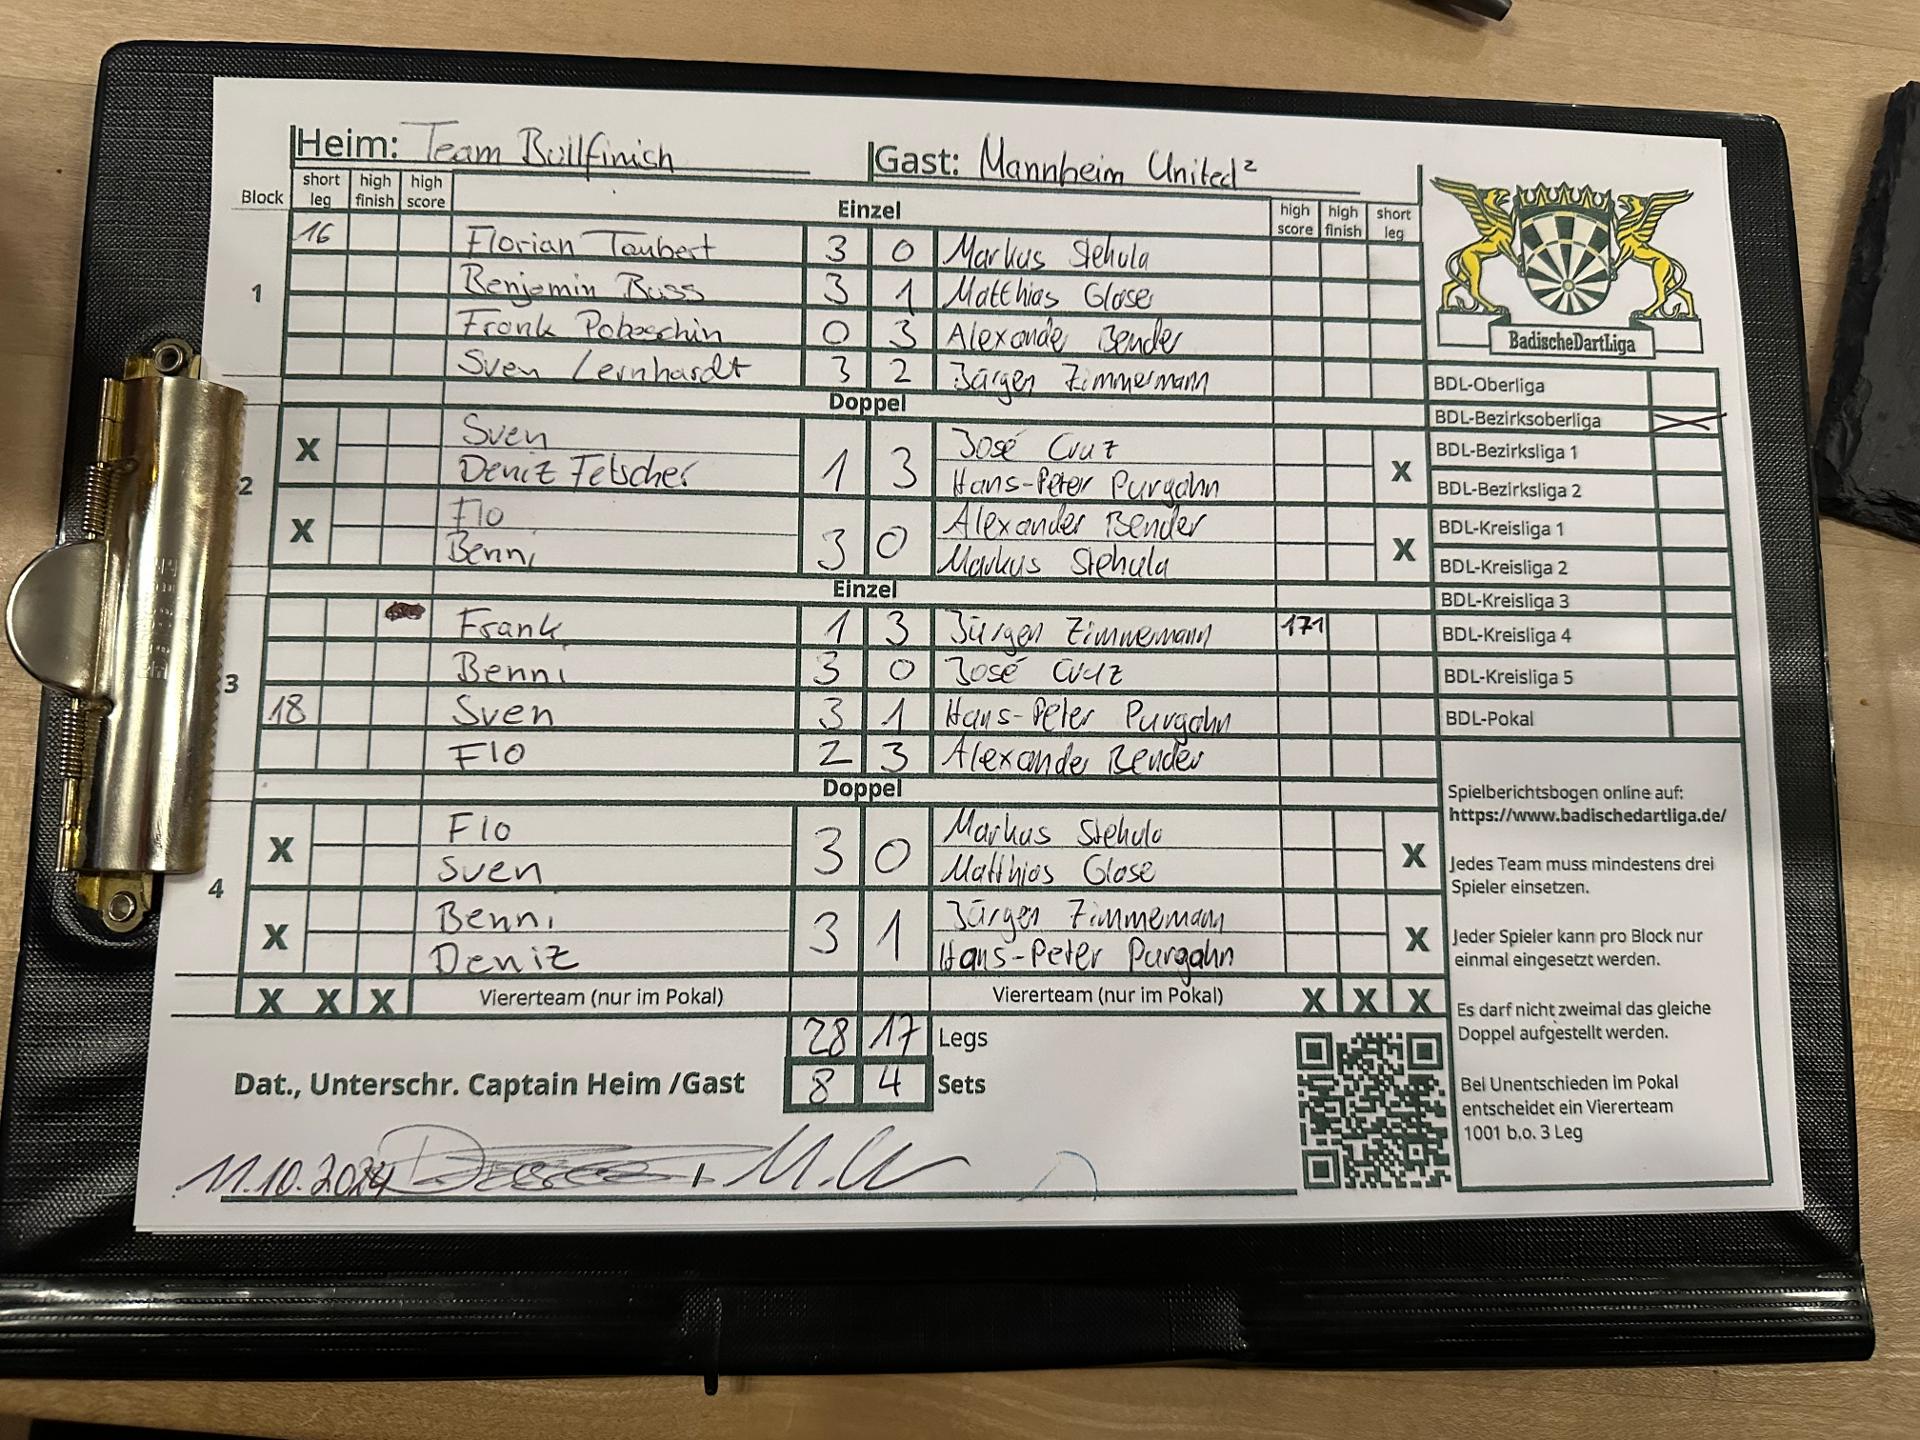 Heim: Team Bullfinish Gast: Mannheim United²
Block short leg high finish high score Einzel high score high finish short leg
1
16 Florian Taubert 3 0 Markus Stehula
Benjamin Buss 3 1 Matthias Glase
Frank Pobaschin 0 3 Alexande Bender
Sven Lernhardt 3 2 Jürgen Zimmermann
Doppel
2
X Sven 1 3 José Cruz X
Deniz Fetscher Hans-Peter Purgahn
X Flo 3 0 Alexander Bender X
Benni Markus Stehula
Einzel
3
Frank 1 3 Jürgen Zimmemann 171
Benni 3 0 José Cruz
18 Sven 3 1 Hans-Peter Purgahn
Flo 2 3 Alexande Bender
Doppel
4
X Flo 3 0 Markus Stehula X
Sven Matthias Glase
X Benni 3 1 Jürgen Zimmemann X
Deniz Hans-Peter Purgahn
X X X Viererteam (nur im Pokal) Viererteam (nur im Pokal) X X X
28 17 Legs
Dat., Unterschr. Captain Heim /Gast 8 4 Sets
11.10.2024
BadischeDartLiga
BDL-Oberliga
BDL-Bezirksoberliga X
BDL-Bezirksliga 1
BDL-Bezirksliga 2
BDL-Kreisliga 1
BDL-Kreisliga 2
BDL-Kreisliga 3
BDL-Kreisliga 4
BDL-Kreisliga 5
BDL-Pokal
Spielberichtsbogen online auf:
https://www.badischedartliga.de/
Jedes Team muss mindestens drei
Spieler einsetzen.
Jeder Spieler kann pro Block nur
einmal eingesetzt werden.
Es darf nicht zweimal das gleiche
Doppel aufgestellt werden.
Bei Unentschieden im Pokal
entscheidet ein Viererteam
1001 b.o. 3 Leg